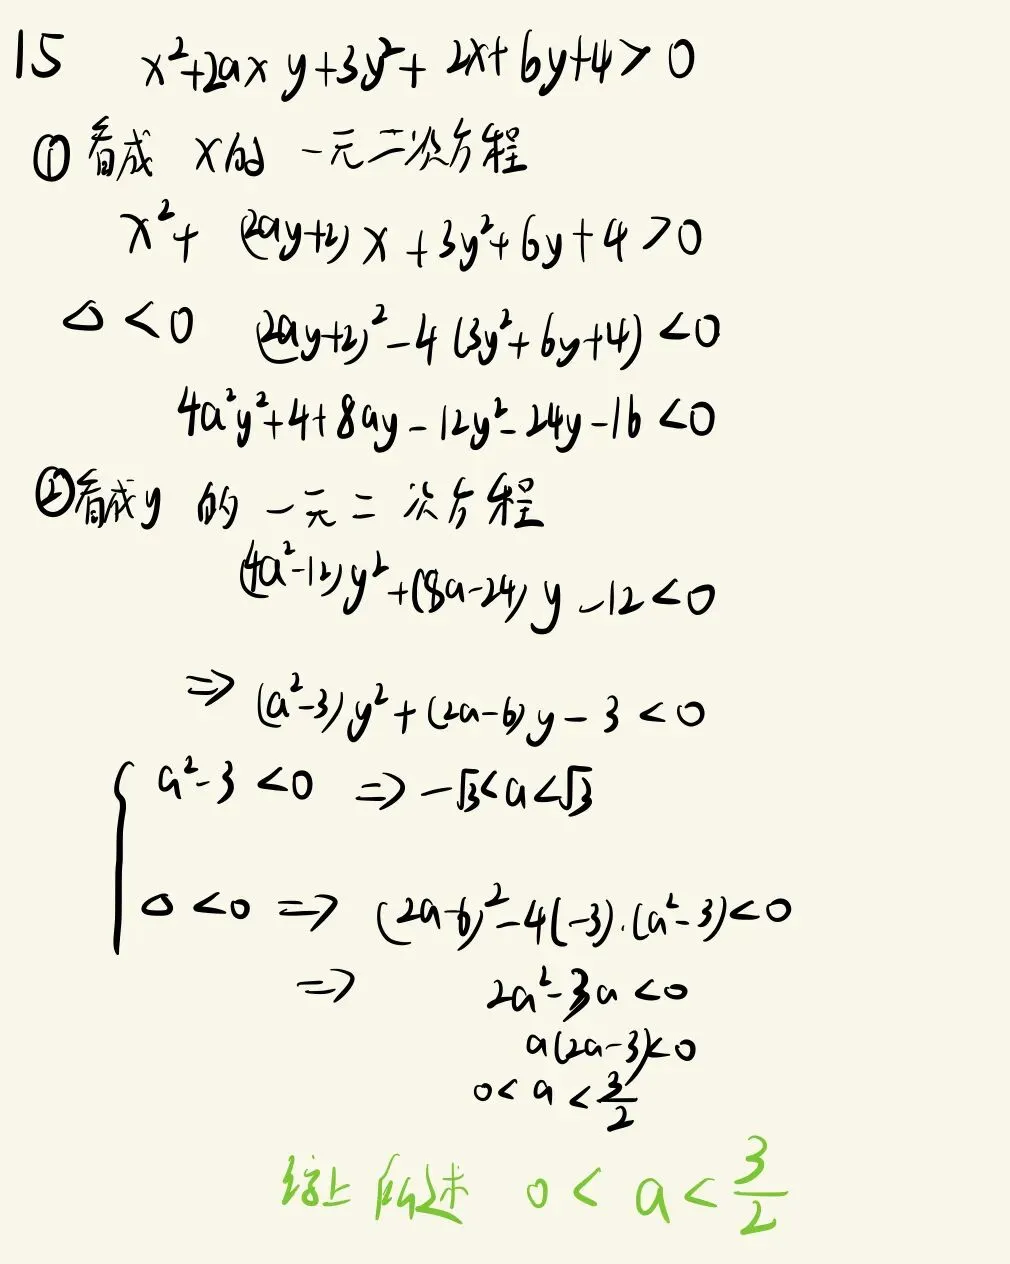 15 x²+2axy+3y²+2x+6y+4>0
① 看成 x的 一元二次方程
x²+(2ay+2)x+3y²+6y+4>0
△<0 (2ay+2)²-4(3y²+6y+4)<0
4a²y²+4+8ay-12y²-24y-16<0
②看成y 的 一元二次方程
(4a²-12)y²+(8a-24)y-12<0
⇒ (a²-3)y²+(2a-6)y-3<0
a²-3<0 ⇒ -√3<a<√3
△<0 ⇒ (2a-6)²-4(-3)·(a²-3)<0
⇒ 2a²-3a<0
a(2a-3)<0
0<a<3/2
综上所述 0<a<3/2